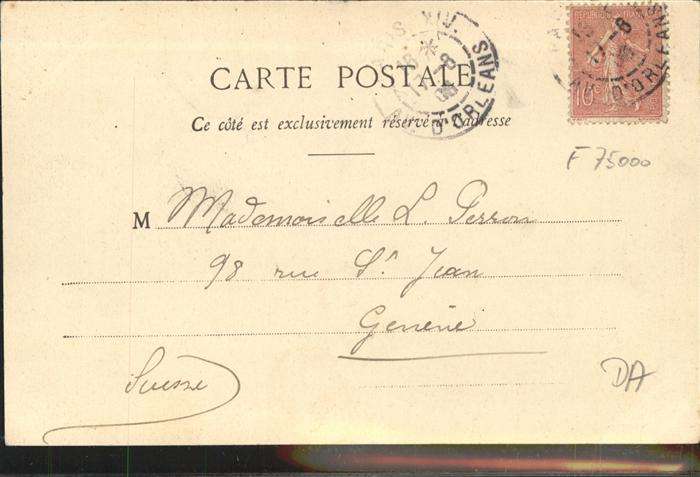 CARTE POSTALE
Ce côté est exclusivement réservé à l'adresse
D'ORLEANS
10c
D'ORLEANS
F 75000
M Mademoiselle L. Perron
98 rue St Jean
Genève
Suisse
DA